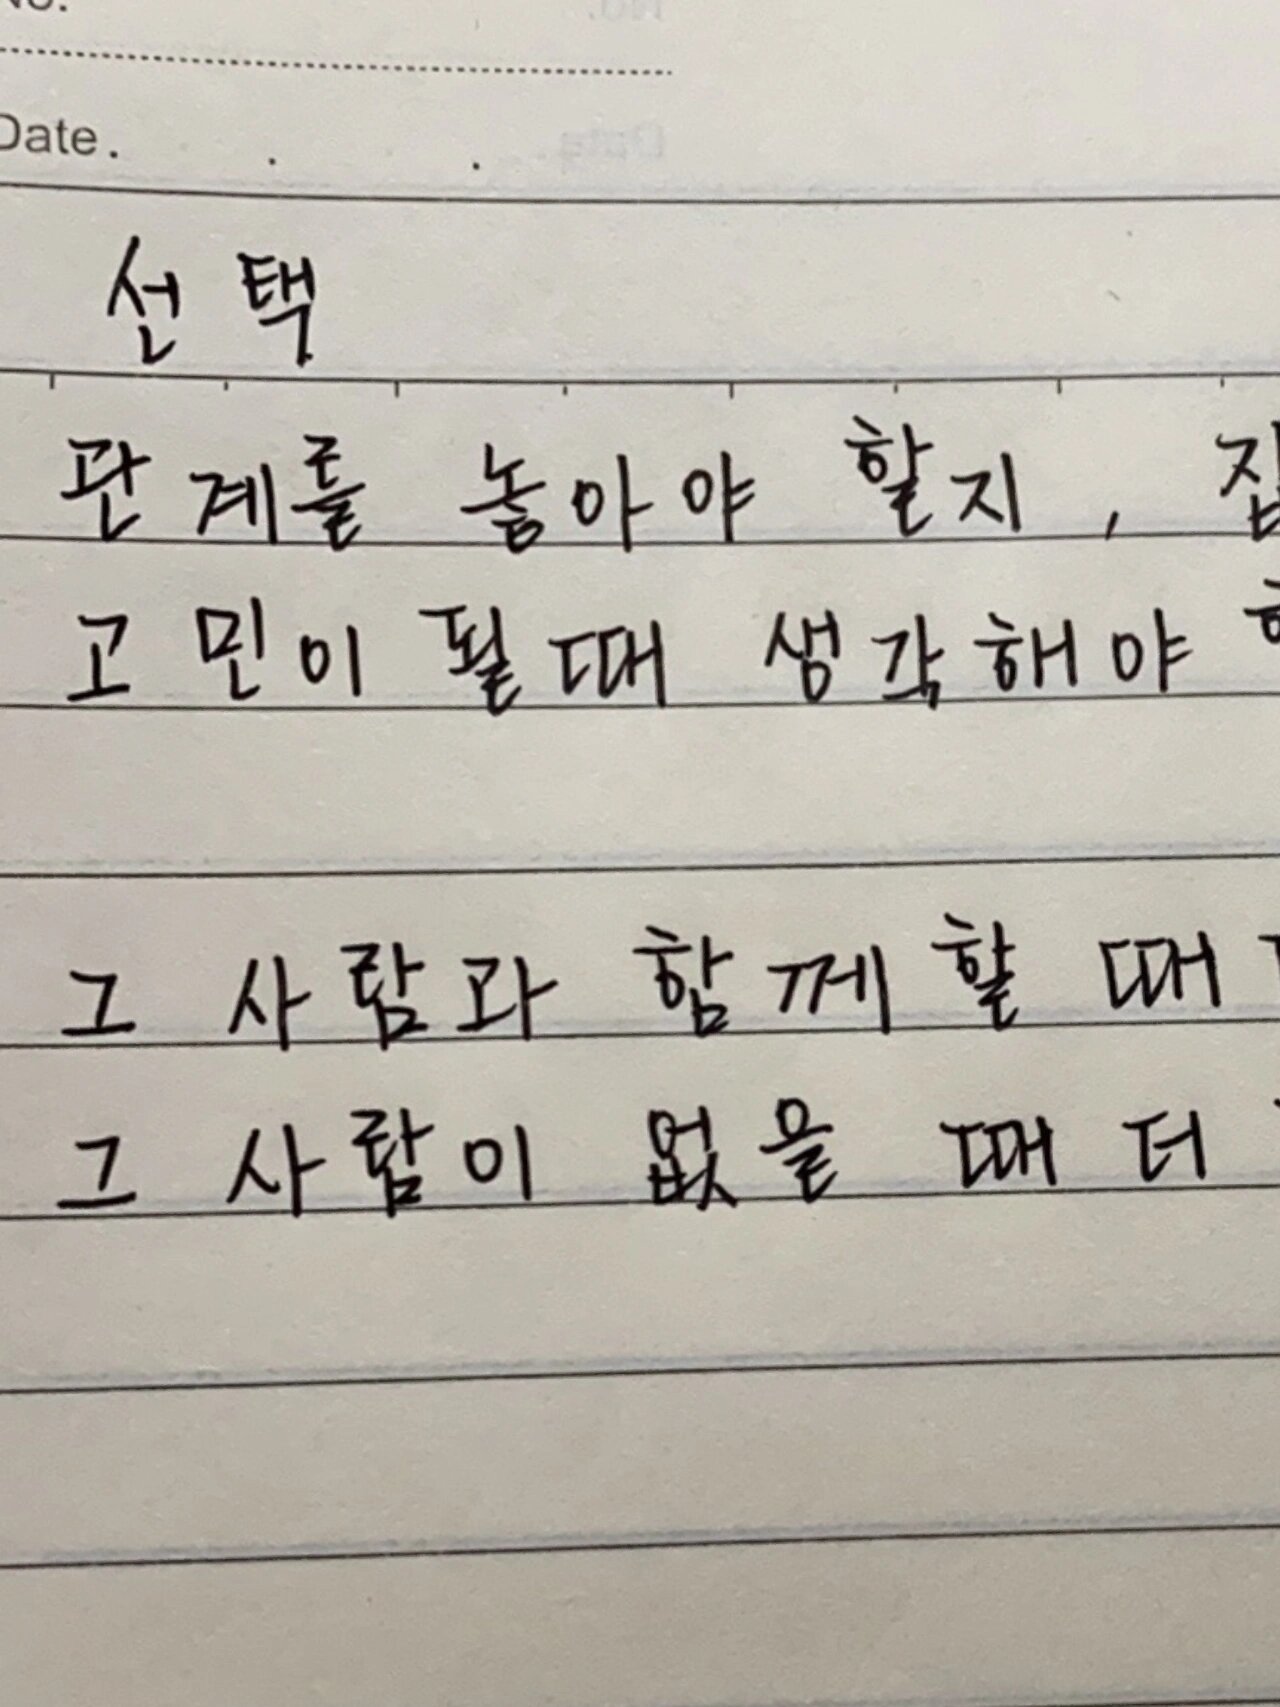 No.
Date. . .
선택
관계를 놓아야 할지,
고민이 될때 생각해야
그 사람과 함께할 때
그 사람이 없을 때 더